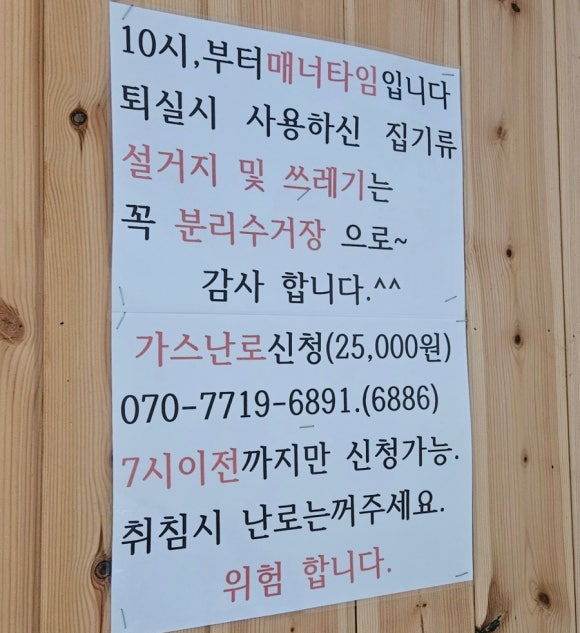 10시,부터매너타임입니다
퇴실시 사용하신 집기류
설거지 및 쓰레기는
꼭 분리수거장 으로~
감사 합니다.^^
가스난로신청(25,000원)
070-7719-6891.(6886)
7시이전까지만 신청가능.
취침시 난로는꺼주세요.
위험 합니다.